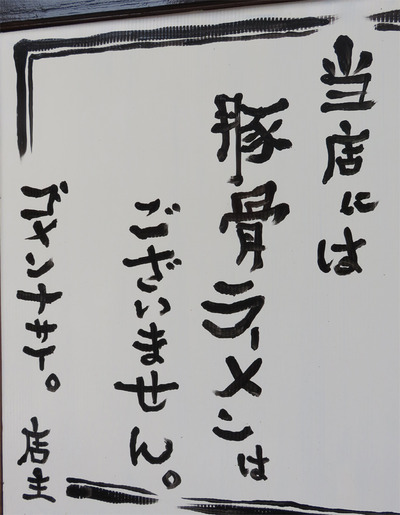 当店には
豚骨ラーメンは
ございません。
ゴメンナサイ。 店主